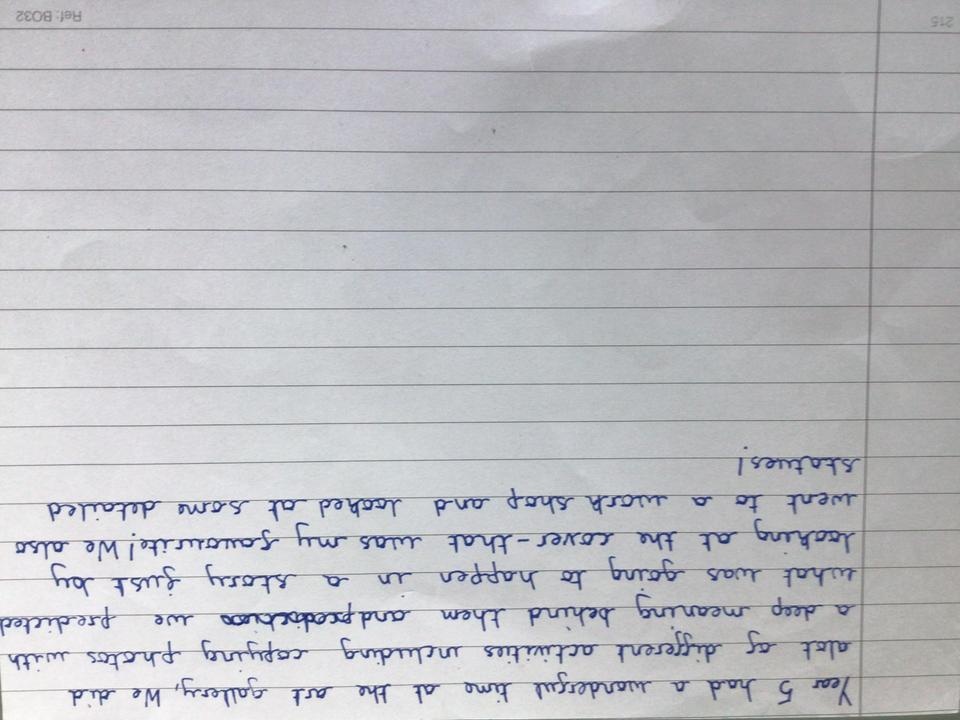 Year 5 had a wonderful time at the art gallery, We did
alot of different activities including copying photos with
a deep meaning behind them and we predicted
what was going to happen in a story just by
looking at the cover - that was my favourite! We also
went to a work shop and looked at some detailed
statues!
215
Ref: BO32